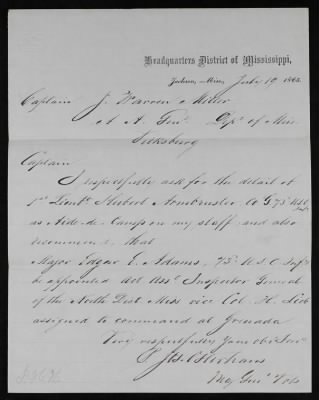 Headquarters District of Mississippi,
Jackson, Miss, July 19 1865.
Captain J. Warren Miller
A. A. Genl. Dept of Miss
Vicksburg
Captain
I respectfully ask for the detail of
1st Lieut. Hubert Co G. 75" USC Inf.
as Aide-de-Camp on my staff and also
recommend, that
Major Edgar E. Adams, 75" U S C Inf.
be appointed Act Asst Inspector General
of the North Dist Miss vice Col. H.
assigned to command at Grenada
Very respectfully Your obt Servt
P. Jos. Osterhaus
Maj Genl Vols